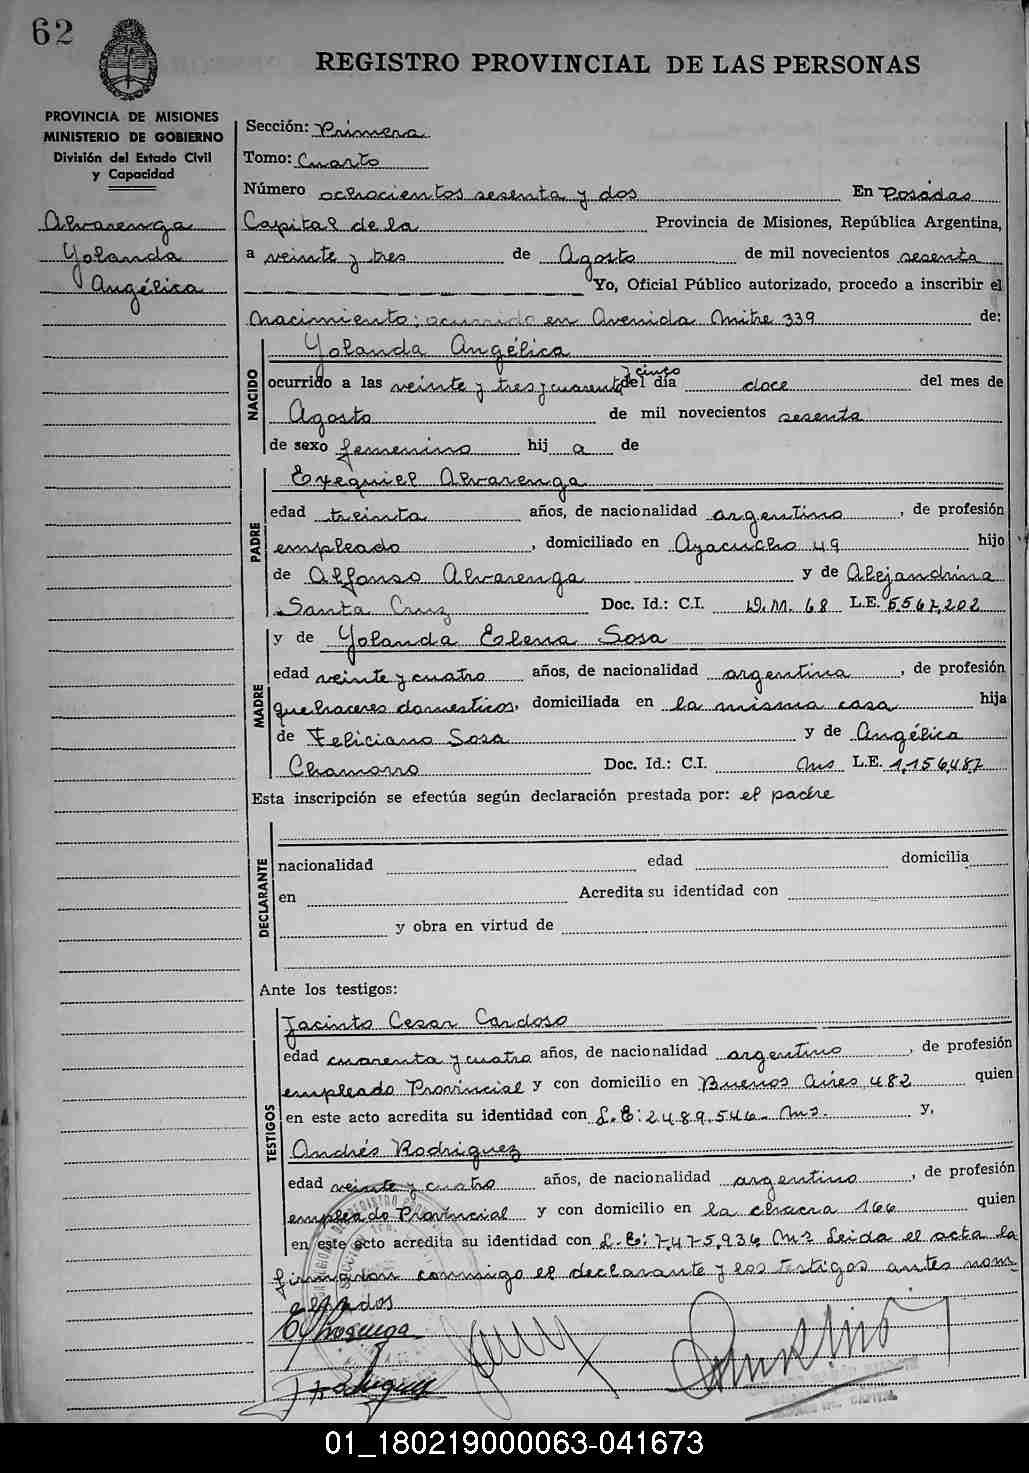 62
REGISTRO PROVINCIAL DE LAS PERSONAS
PROVINCIA DE MISIONES
MINISTERIO DE GOBIERNO
División del Estado Civil
y Capacidad
Alvarenga
Yolanda
Angélica
Sección: Primera
Tomo: Cuarto
Número ochocientos sesenta y dos En Posadas
Capital de la Provincia de Misiones, República Argentina,
a veinte y tres de Agosto de mil novecientos sesenta
Yo, Oficial Público autorizado, procedo a inscribir el
nacimiento; ocurrido en Avenida Mitre 339 de:
NACIDO
Yolanda Angélica
ocurrido a las veinte y tres y cuarenta y cinco del día doce del mes de
Agosto de mil novecientos sesenta
de sexo femenino hij a de
PADRE
Exequiel Alvarenga
edad treinta años, de nacionalidad argentino, de profesión
empleado, domiciliado en Ayacucho 49 hijo
de Alfonso Alvarenga y de Alejandrina
Santa Cruz Doc. Id.: C.I. D.M. 68 L.E. 5.567,202
MADRE
y de Yolanda Elena Sosa
edad veinte y cuatro años, de nacionalidad argentina, de profesión
quehaceres domesticos, domiciliada en la misma casa hija
de Feliciano Sosa y de Angélica
Chamorro Doc. Id.: C.I. Mns L.E. 1,156,487
Esta inscripción se efectúa según declaración prestada por: el padre
DECLARANTE
nacionalidad edad domicilia
en Acredita su identidad con
y obra en virtud de
Ante los testigos:
TESTIGOS
Jacinto Cesar Cardoso
edad cuarenta y cuatro años, de nacionalidad argentino, de profesión
empleado Provincial y con domicilio en Buenos Aires 482 quien
en este acto acredita su identidad con L.E: 2489.546- Mns. y,
Andrés Rodriguez
edad veinte y cuatro años, de nacionalidad argentino, de profesión
empleado Provincial y con domicilio en la chacra 166 quien
en este acto acredita su identidad con L.E: 7,475,936 Mns Leida el acta la
firmaron conmigo el declarante y los testigos antes nom-
brados
EAlvarenga
CAPITAL
01_180219000063-041673